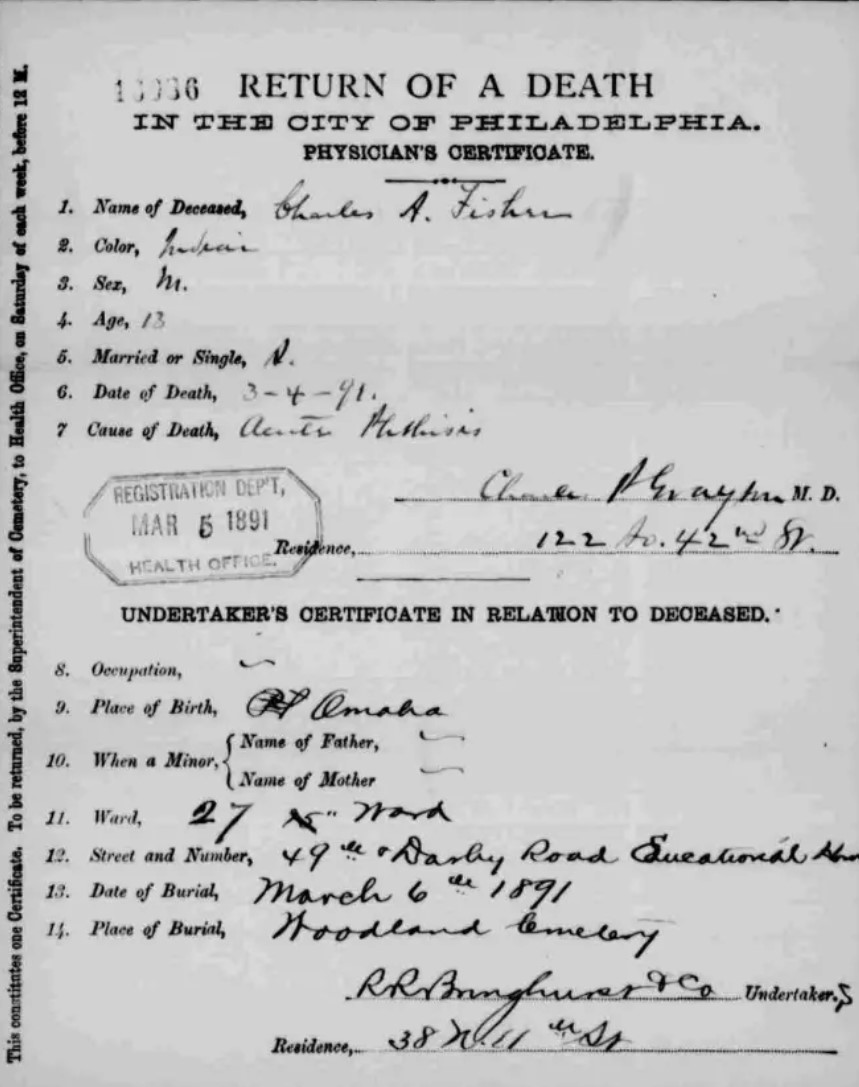 RETURN OF A DEATH
IN THE CITY OF PHILADELPHIA.
PHYSICIAN'S CERTIFICATE.
1. Name of Deceased, Charles A. Fisher
2. Color, Indian
3. Sex, M.
4. Age, 13
5. Married or Single, S.
6. Date of Death, 3-4-91.
7 Cause of Death, Acute Phthisis
REGISTRATION DEP'T,
MAR 5 1891
HEALTH OFFICE.
Charles P Grayson M. D.
Residence, 122 So. 42nd St.
UNDERTAKER'S CERTIFICATE IN RELATION TO DECEASED.
8. Occupation,
9. Place of Birth, Omaha
10. When a Minor, { Name of Father,
Name of Mother
11. Ward, 27 " Ward
12. Street and Number, 49th & Darby Road Eucational Hom
13. Date of Burial, March 6th 1891
14. Place of Burial, Woodland Cemetery
R R Bringhurst & Co Undertaker.
Residence, 38 N. 11th St
This constitutes one Certificate. To be returned, by the Superintendent of Cemetery, to Health Office, on Saturday of each week, before 12 M.